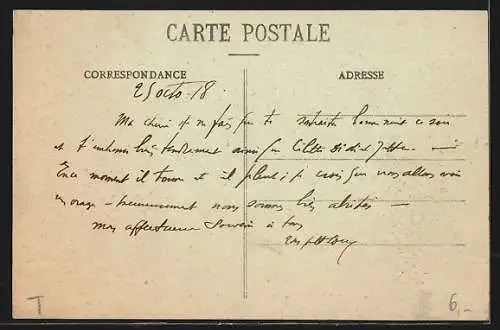 CARTE POSTALE
CORRESPONDANCE
ADRESSE
25 octo. 18
Ma chérie je ne fais que te souhaiter bonne nuit ce soir
et t'embrasser bien tendrement ainsi que
En ce moment il tonne et il pleut, je crois que nous allons avoir
un orage – heureusement nous sommes bien abrités –
mon affectueux souvenir à tous
T
6,-